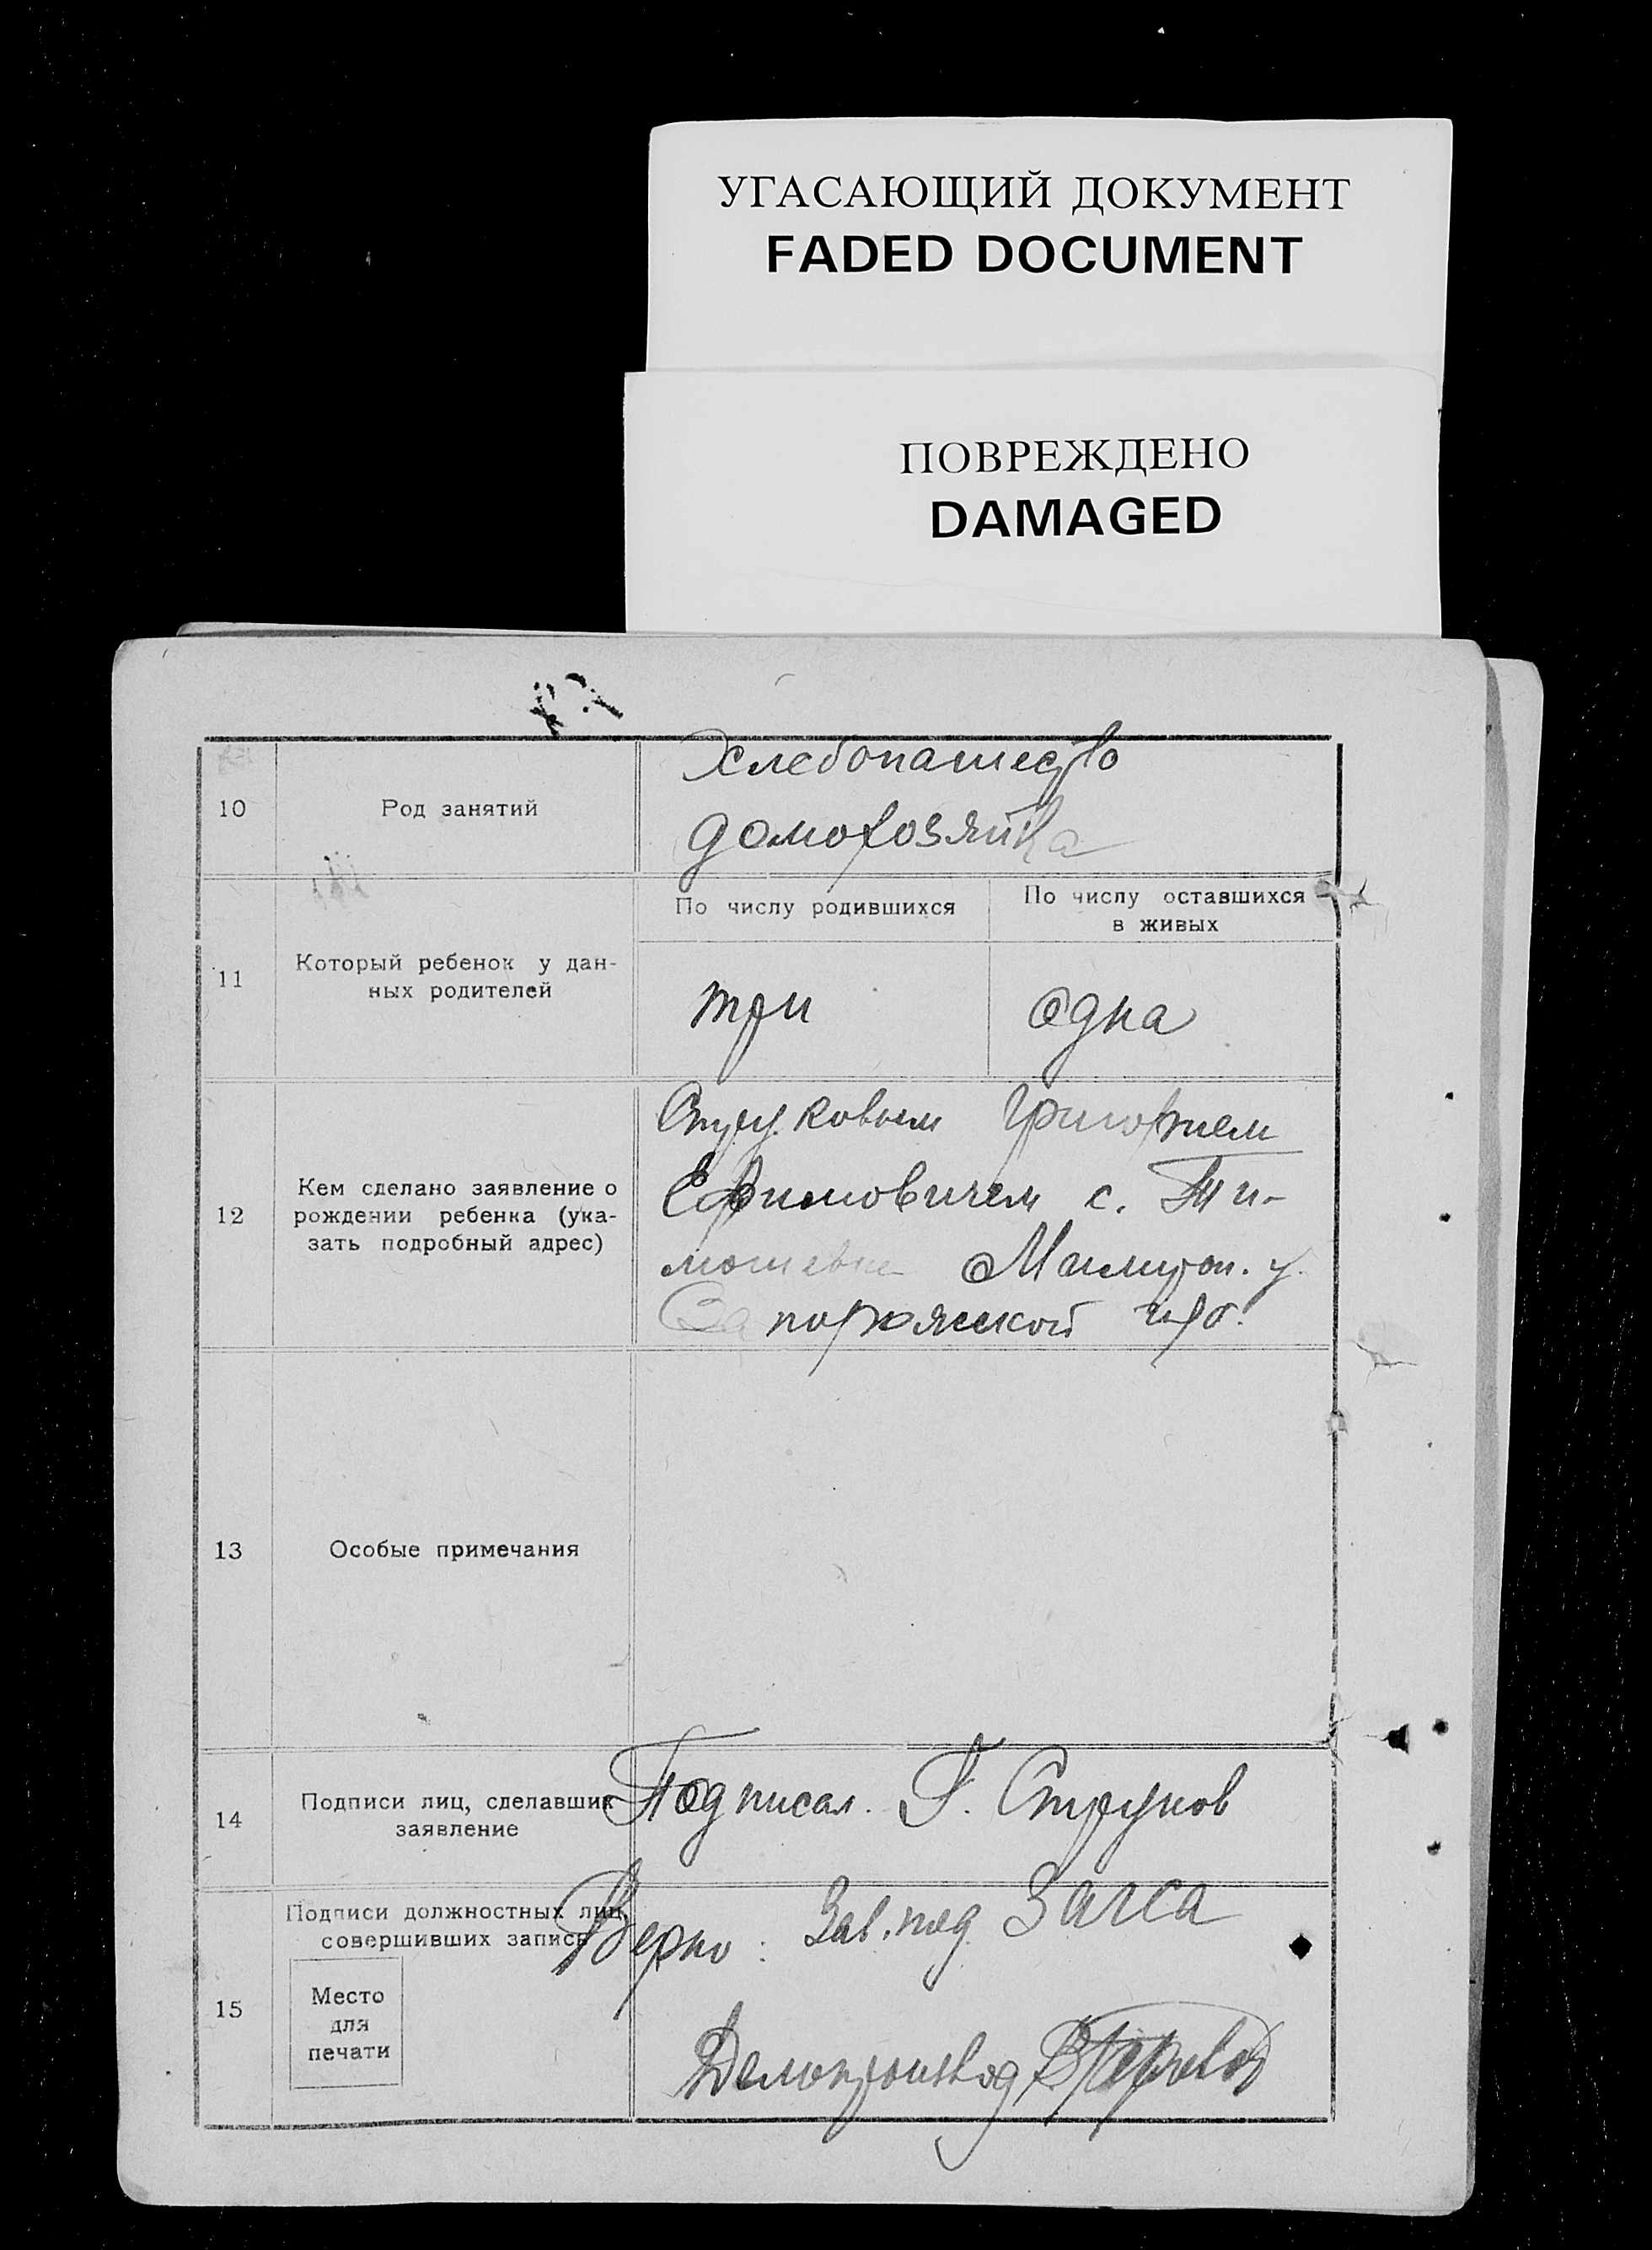 УГАСАЮЩИЙ ДОКУМЕНТ
FADED DOCUMENT
ПОВРЕЖДЕНО
DAMAGED
10
Род занятий
Хлебопашество
домохозяйка
11
Который ребенок у дан-
ных родителей
По числу родившихся
три
По числу оставшихся
в живых
одна
12
Кем сделано заявление о
рождении ребенка (ука-
зать подробный адрес)
Григорием
Ефимовичем с. Ти-
мошевка у.
Запорожской губ.
13
Особые примечания
14
Подписи лиц, сделавших
заявление
Подписал. Г. Струков
15
Подписи должностных лиц,
совершивших запись
Место
для
печати
Верно: Зав. под Загса
Делопроизвод